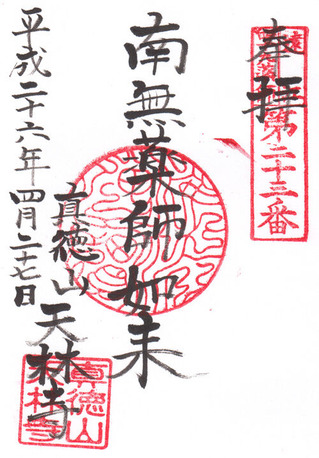 奉拝
第二十三番
南無薬師如来
真徳山
天林寺
平成二十六年四月二十七日
真徳山
天林寺